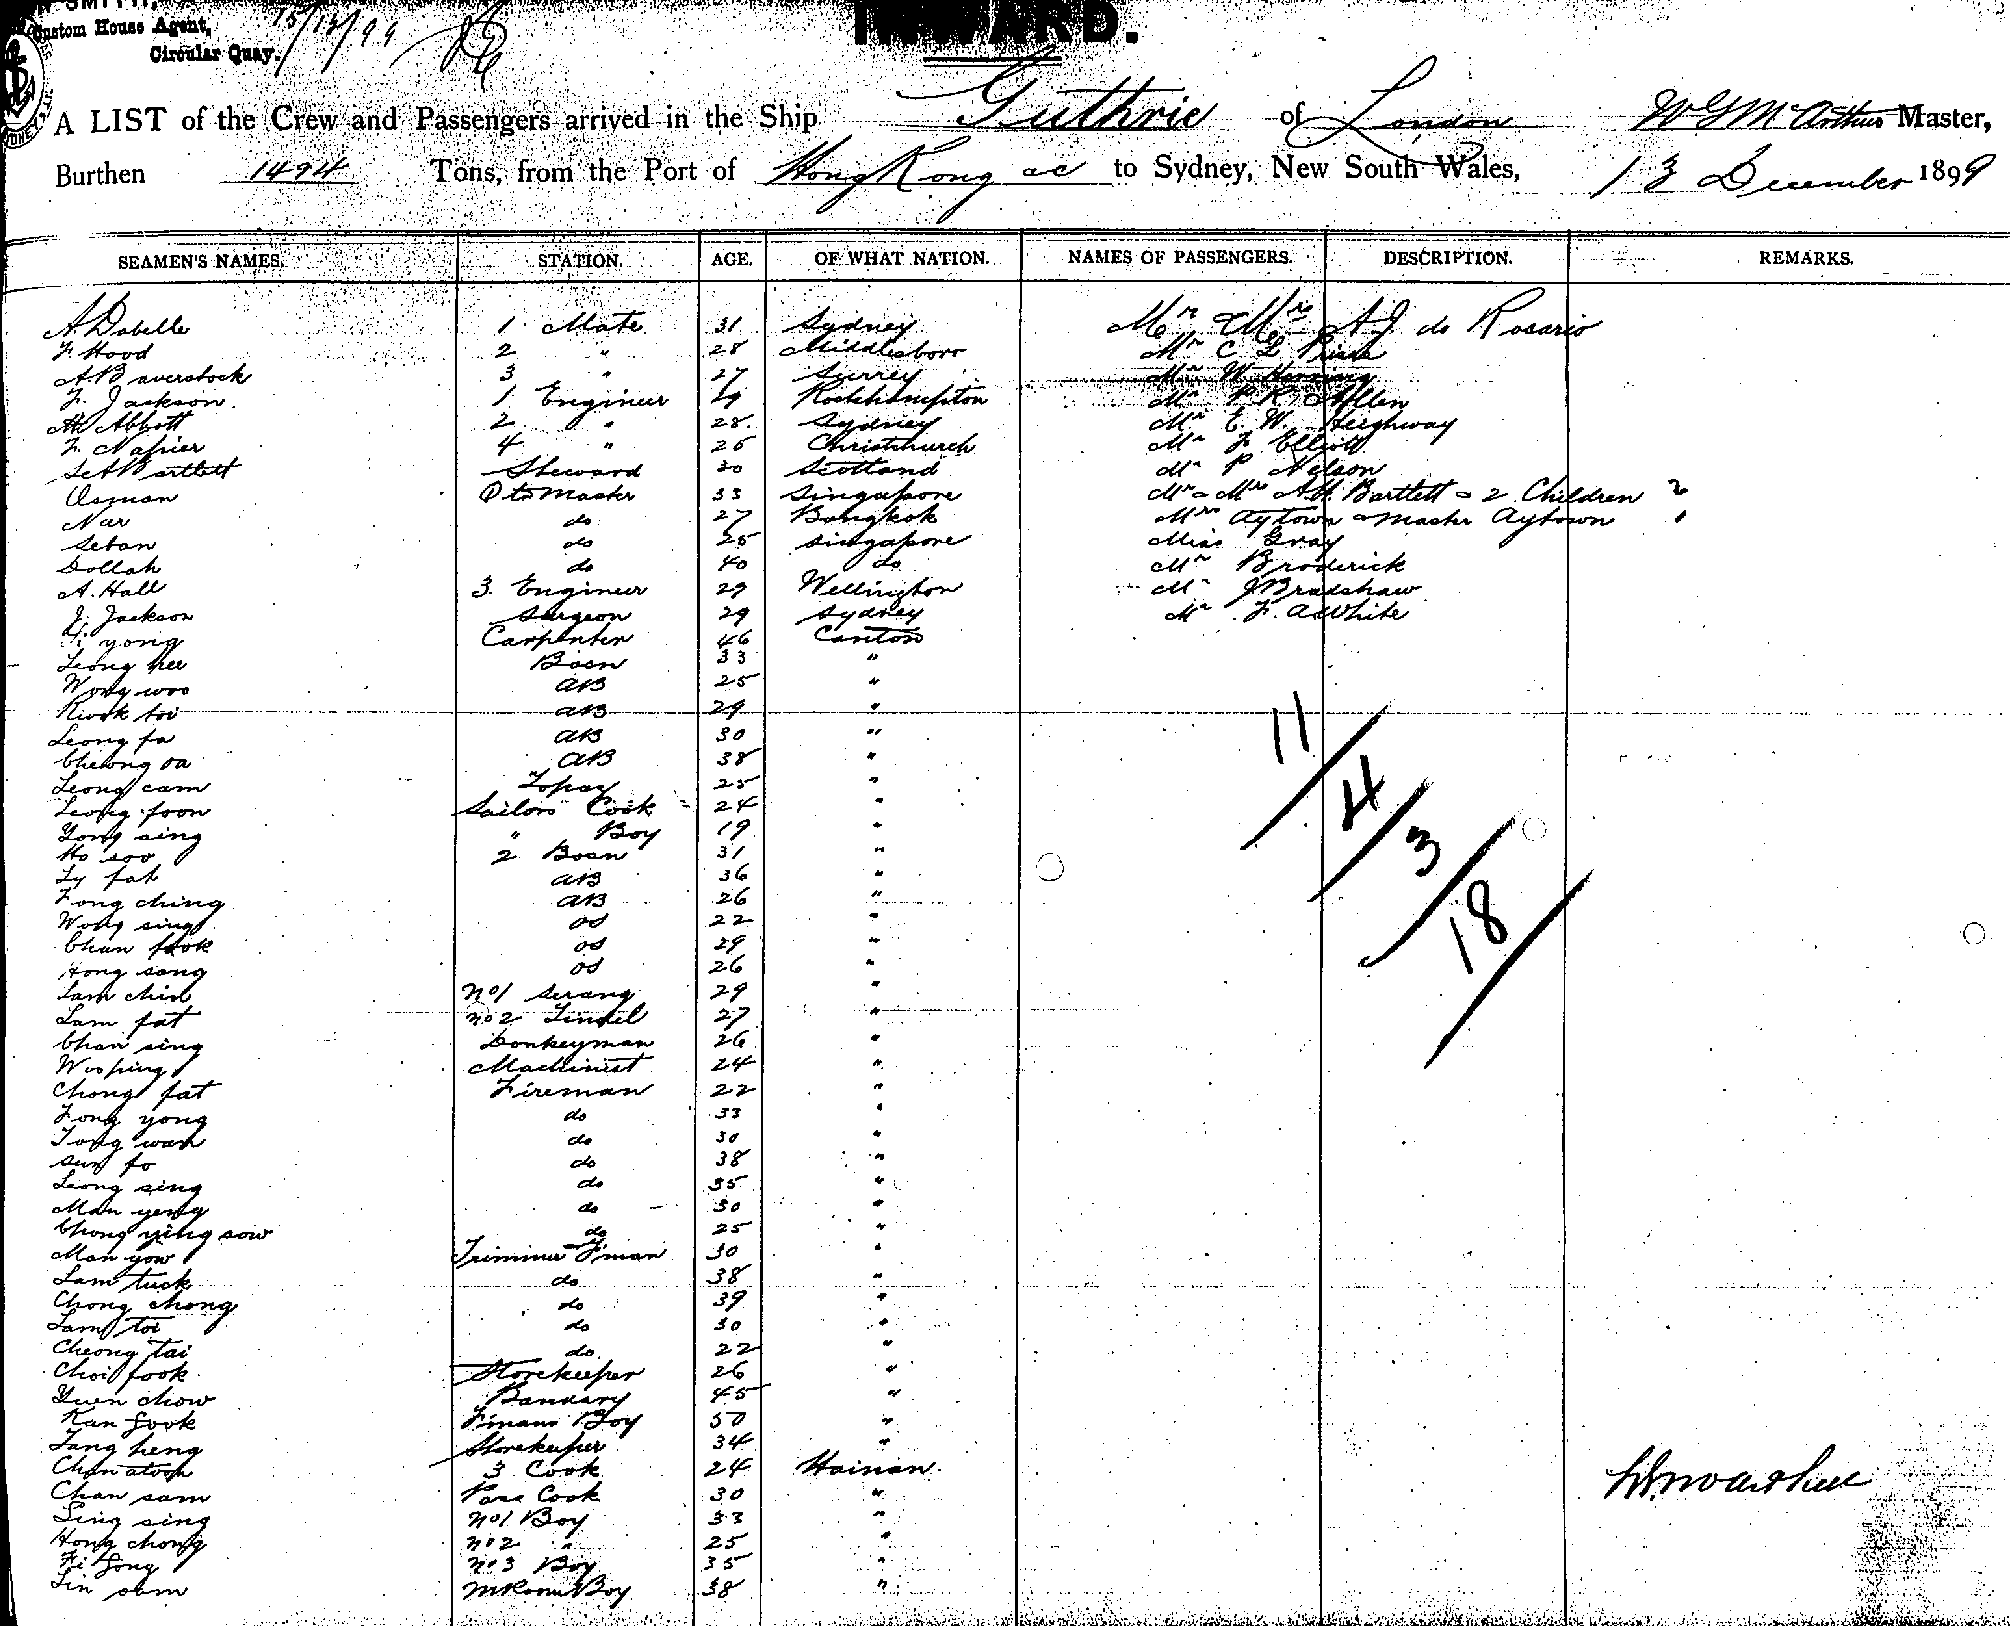 SMITH,
Custom House Agent,
Circular Quay.
15/12/99
INWARD.
A LIST of the Crew and Passengers arrived in the Ship Guthrie of London W G McArthur Master,
Burthen 1494 Tons, from the Port of Hong Kong ac to Sydney, New South Wales, 13 December 1899
SEAMEN'S NAMES. STATION. AGE. OF WHAT NATION. NAMES OF PASSENGERS. DESCRIPTION. REMARKS.
A. Dabelle 1 Mate 31 Sydney Mr & Mrs A J do Rosario
F. Hood 2 " 28 Middlesboro Mr C L
A. Baverstock 3 " 27 Surrey Mr W
F. Jackson. 1 Engineer Rockhampton Mr Allen
Abbott 2 " 28. Sydney Mr E. W. Heighway
F. Napier 4 " 26 Christchurch Mr F Elliott
Bartlett Steward 30 Scotland Mr P Nelson
Osman Qtr Master 33 Singapore Mr & Mrs A.H. Bartlett & 2 Children 2
Nar do 27 Bangkok Mrs Aytown & Master Aytown 1
Seban do 25 Singapore Miss Gray
Dollah do 40 do Mr Broderick
A. Hall 3. Engineer 29 Wellington Mr J Bradshaw
J. Jackson Surgeon 29 Sydney Mr F. A White
yong Carpenter 46 Canton
Leong hee Bosn 33 "
Wong woo AB 25 "
Kwok toi AB 29 "
Leong fa AB 30 "
Cheong oa AB 38 "
Leong cam Topay 25 "
Leong foon Sailors Cook 24 "
Yong sing " Boy 19 "
Ho soo 2 Bosn 31 "
Ly fat AB 36 "
Fong ching AB 26 "
Wong sing OS 22 "
Chan fook OS 29 "
Hong song OS 26 "
Lam chin No 1 Serang 29 "
Lam fat No 2 Tindel 27 "
Chan sing Donkeyman 26 "
Woo ping Machinist 24 "
Chong fat Fireman 22 "
Fong yong do 33 "
Tong wah do 30 "
Sun fo do 38 "
Leong sing do 35 "
Man yeng do 30 "
Chong ying sow do 25 "
Man yow Trimmer F'man 30 "
Lam tuck do 38 "
Chong chong do 39 "
Lam toi do 30 "
Cheong tai do 22 "
Choi fook Storekeeper 26 "
Yuen chow Bandary 45 "
Kan fook Fmans Boy 50 "
Tang heng Storekeeper 34 "
Chan 3 Cook 24 Hainan
Chan sam Cook 30 "
Ling sing No 1 Boy 33 "
Hong chong No 2 " 25 "
Fi fong No 3 Boy 35 "
Lin sam MRoom Boy 38 "
11/4/3/18